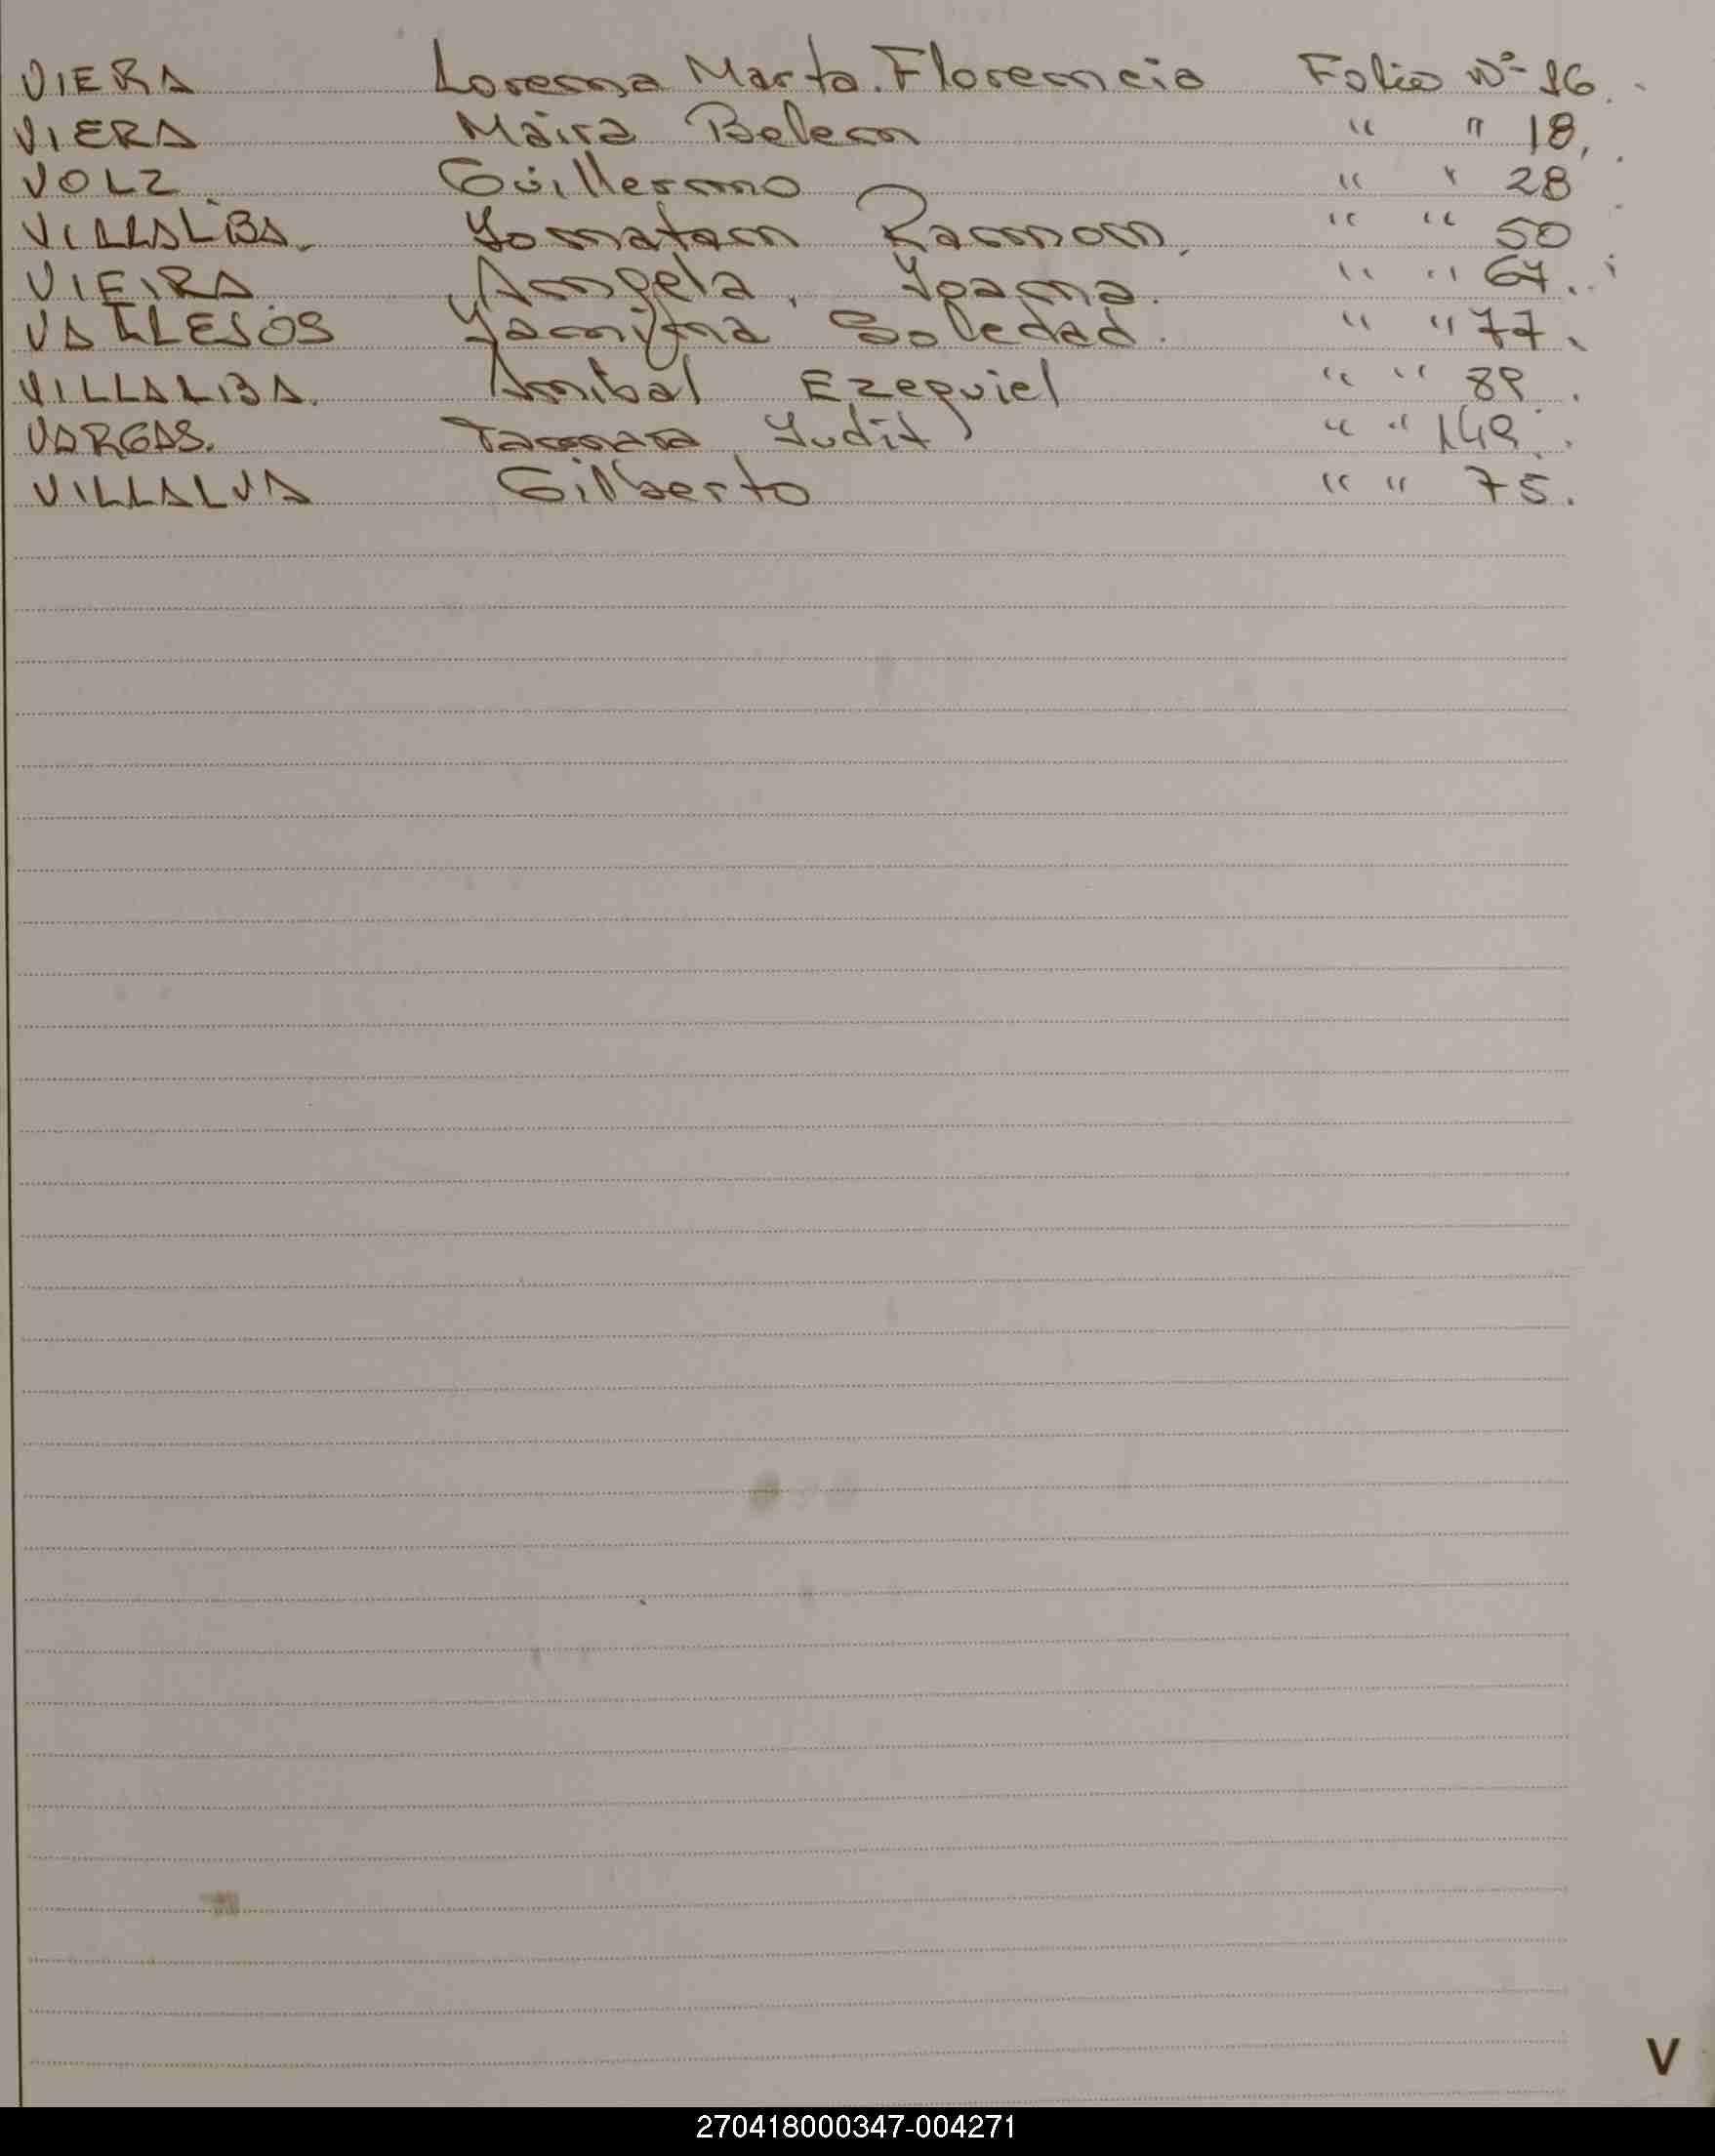 VIERA Lorena Marta. Florencia Folio Nº 16.
VIERA Maira Belen " " 18,
VOLZ Guillermo " " 28
VILLALBA. Yonatan Ramon. " " 50
VIEIRA Angela, Joana. " " 67.
VALLEJOS Yamina Soledad. " " 77.
VILLALBA. Anibal Ezequiel " " 89.
VARGAS. Tamara Yudit " " 149.
VILLALVA Gilberto " " 75.
V
270418000347-004271